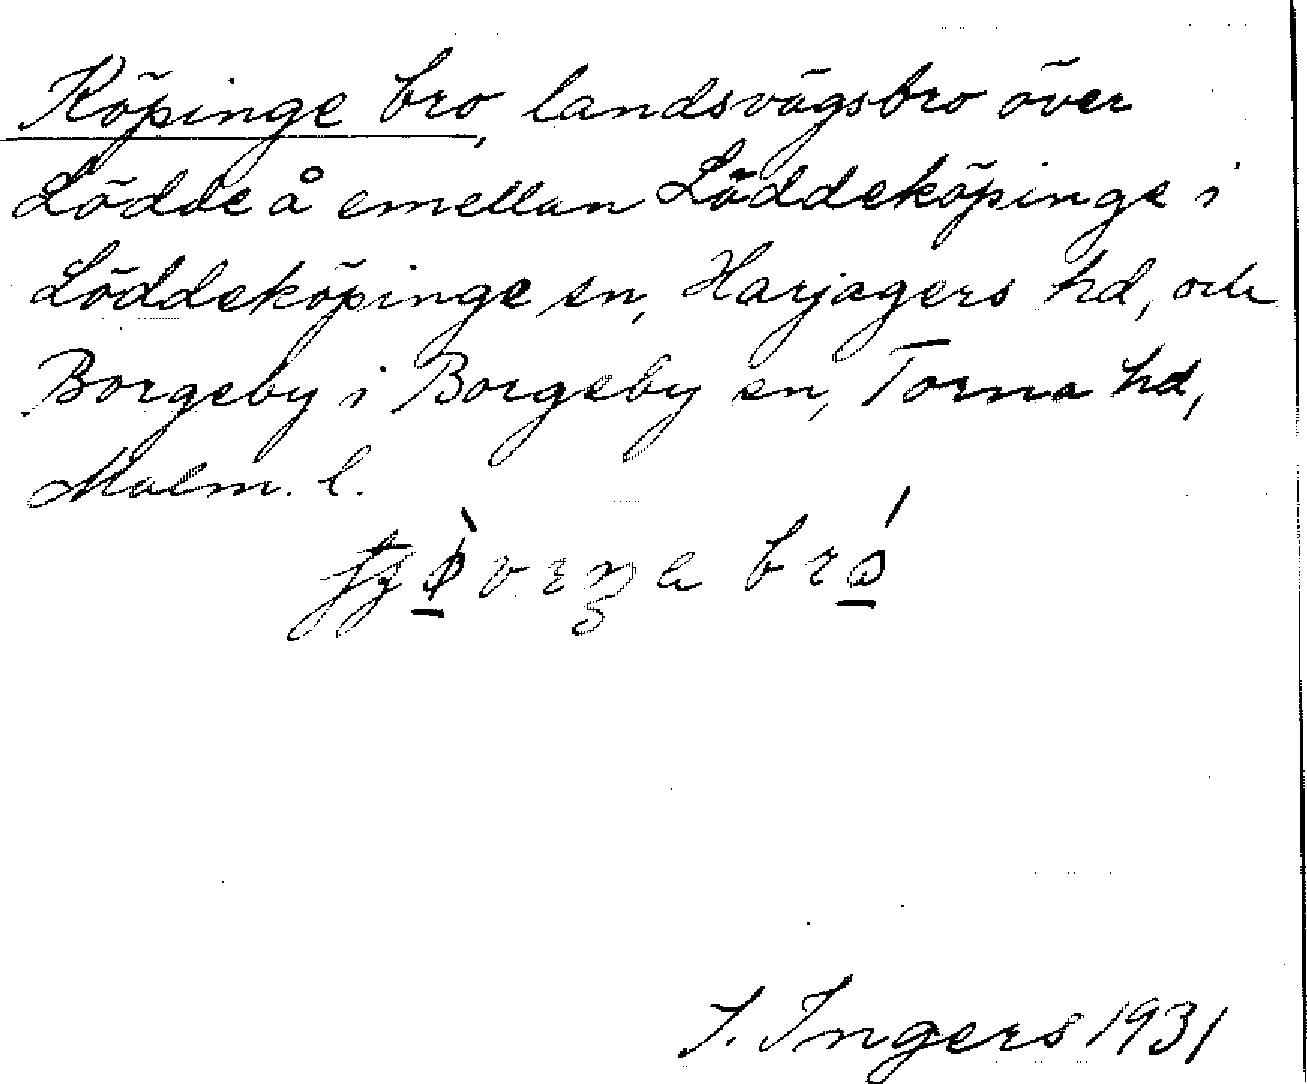 Köpinge bro, landsvägsbro över
Lödde å emellan Löddeköpinge i
Löddeköpinge sn, Harjagers hd, och
Borgeby i Borgeby sn, Torna hd,
Malm. l.
I. Ingers 1931